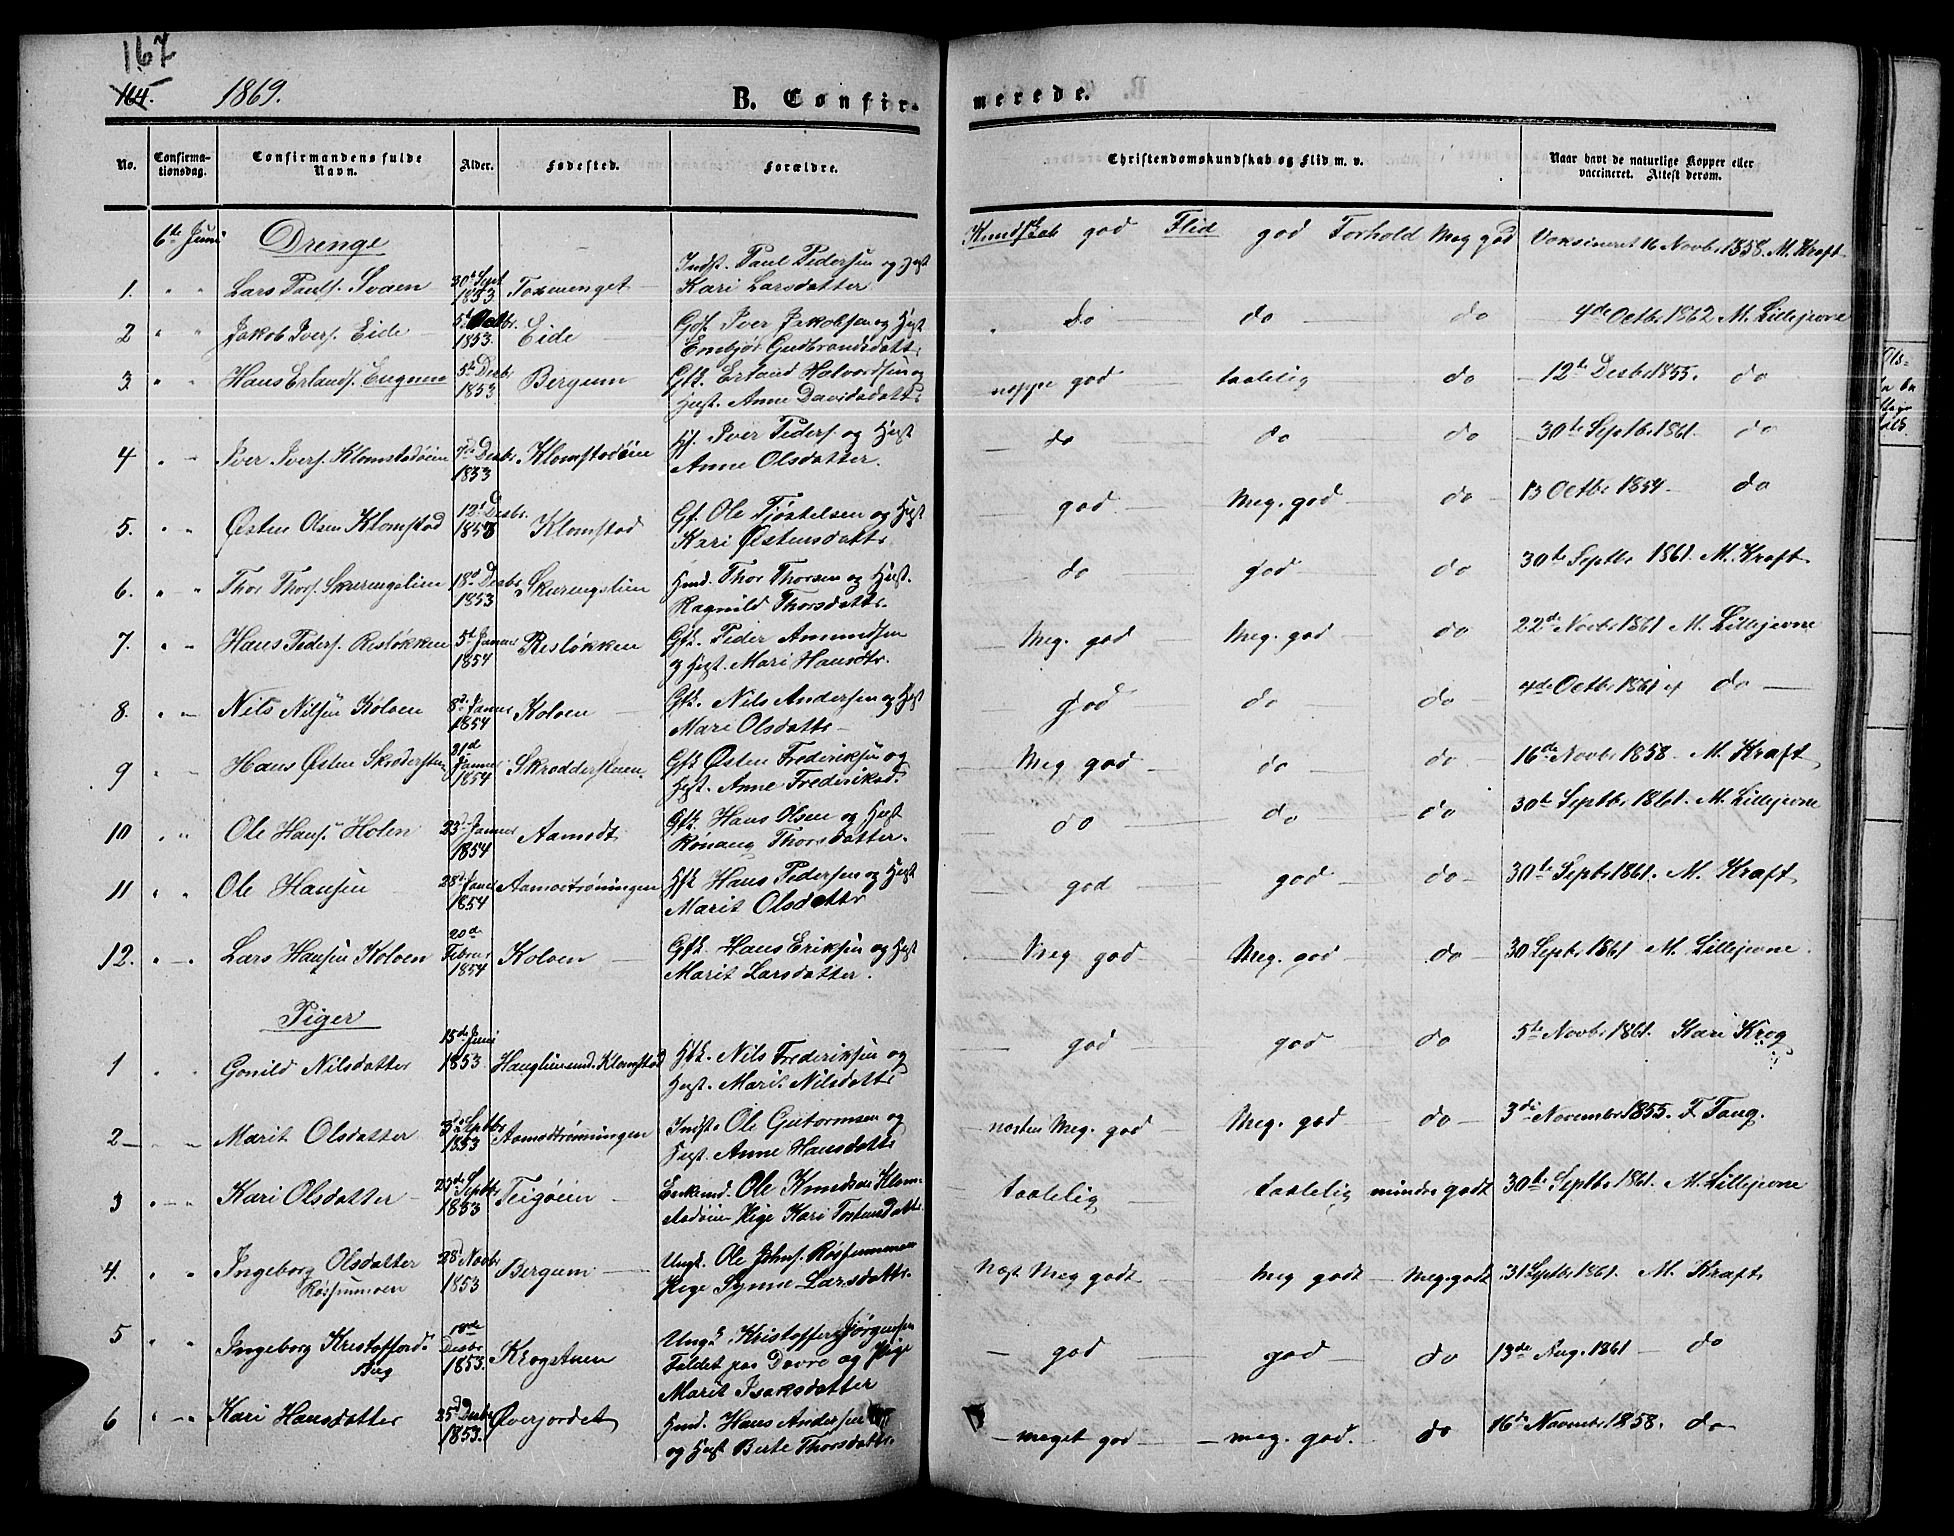 167
164.
1869.
B. Confir-
merede.
No.
Confirma-
tionsdag.
Confirmandens fulde
Navn.
Alder.
Fødested.
Forældre.
Christendomskundskab og Flid m. v.
Naar havt de naturlige Kopper eller
vaccineret. Attest derom.
6te Juni Drenge
Kundskab god Flid god Forhold Meg god Vaksineret 16 Novbr 1858. M. Kraft
1. " " Lars Pauls. Svaen 30te Sept 1853 Indst. Paul Pedersen og Hust
Kari Larsdatter
2 " " Jakob Ivers. Eide 5t Octbr. 1853. Eide Gdf. Iver Jakobsen og Hust
Embjør Gudbrandsdattr
do do do 4de Octbr 1862 M. Lillejevne
3 " " Hans Erlands. 5te Desbr 1853 Bergum Gfk. Erland Halvordsen og
Hust. Anne Davidsdattr
neppe god taalelig do 12te Desbr 1855. do
4 " " Iver Ivers. Klomstadøien 7de Desbr 1853 Klomstadøien Hf. Iver Peders. og Hust
Anne Olsdatter.
do do do 30te Septbr 1861. do
5. " " Østen Olsen Klomstad 12t Desbr. 1853 Klomstad Gf. Ole Tjøstelsen og Hust
Kari Østensdattr
god Meg. god do 13 Octbr 1854 do
6. " " Thor Thors. Skurengslien 18de Desbr 1853 Skurengslien Hmd. Thor Thorsen og Hust.
Ragnild Thorsdattr.
do god do 30te Septbr 1861. M. Kraft
7. " " Hans Peders. Resløkken 5t Januar 1854 Resløkken Gfk. Peder Amundsen
og Hust. Mari Hansdtr.
Meg. god Meg. god do 22de Novbr 1861 M. Lillejevne
8. " " Nils Nilsen Kolven 8de Januar 1854 Kolven Gfk. Nils Andersen og Hust
Mari Olsdattr
god do do 4de Octbr 1861 do
9 " Hans Østen 31d Januar 1854 Skrødderstuen Gfk Østen Frederiksen og
Hust. Anne Frederiksd.
Meg god do do 16de Novbr 1858. M. Kraft
10 " " Ole Hans. Holen 23d Januar 1854 Aamodt Gfk. Hans Olsen og Hust
Rønaug Thorsdatter.
do do do 30te Septbr 1861. M. Lillejevne
11 " " Ole Hansen 28d Januar 1854 Aamostrøningen Hfk Hans Pedersen og Hust
Marit Olsdattr
god god do 30te Septbr 1861. M. Kraft
12. " " Lars Hansen Kolven 20de Februar 1854 Kolven Gfk. Hans Eriksen og Hust
Marit Larsdatter.
Meg god Meg. god do 30 Septbr 1861 M. Lillejevne
Piger
1 " Gonild Nilsdatter 15de Juni 1853 Klomstad Hfk. Nils Frederiksen og
Hust. Marit Nilsdattr
god god do 5te Novbr 1861. Kari Krog
2 " " Marit Olsdatter 3de Septbr 1853 Aamodtrøningen Indst. Ole Gutormsen og
Hust. Anne Hansdattr
næsten Meg. god Meg. god do 3de November 1855. F. Tang.
3 " " Kari Olsdatter 23de Septbr 1853 Teigøien Enkemd. Ole Knudsen Klom-
stadøien Pige Kari Tostensdattr
taalelig taalelig mindre godt 30te Septbr 1861. M. Lillejevne
4. " " Ingeborg Olsdatter
Røssumoen 28d Novbr 1853 Bergum Ungk. Ole Johns. Røssummoen
Pige Synne Larsdattr.
Næst Meg godt Meg godt Meg. godt 31 Septbr 1861. M. Kraft
5 " " Ingeborg Kristoffersd.
Bug 18de Desbr 1853. Krogstuen Ungk. Kristoffer Jørgensen
Faldet paa Dovre og Pige
Marit Isaksdatter
god god do 13de Aug. 1861 do
6 " " Kari Hansdatter 25d Desbr 1853. Øverjordet Hmd. Hans Andersen
og Hust Berte Thorsdattr.
meget god meg. god. do 16de November 1858. do